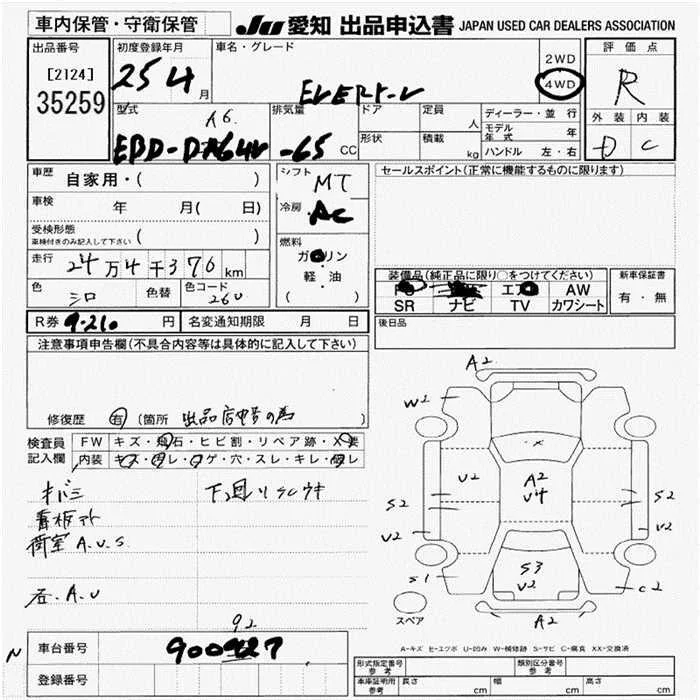 車内保管・守衛保管 JU 愛知 出品申込書 JAPAN USED CAR DEALERS ASSOCIATION
出品番号
[2124]
35259
初度登録年月
25 4 月
車名・グレード
2WD
4WD
評価点
R
外装 内装
D C
型式
排気量
EBD-DA64V -65 CC
ドア
定員
人
形状
積載
kg
ディーラー・並行
モデル年式 年
ハンドル 左・右
車歴 自家用・( )
車検 年 月( 日)
受検形態
車検付きのみ記入して下さい ( )
走行 24万4千376 km
色
色替
色コード
26U
R券 9.210 円 名変通知期限 月 日
シフト MT
冷房 AC
燃料
ガソリン
軽・油
( )
セールスポイント(正常に機能するものに限ります)
装備品(純正品に限り〇をつけてください)
PS エアB AW
SR ナビ TV カワシート
新車保証書
有・無
後日品
注意事項申告欄(不具合内容等は具体的に記入して下さい)
修復歴 有 (箇所
検査員記入欄
FW キズ・飛石・ヒビ割・リペア跡・X要
内装
キバミ
荷室 A.U.S.
右.A.U
92
N 車台番号 900927
登録番号
A2
W2
U2
A2
U4
S2
U2
S2
U2
S3
U2
S1
C2
A2
スペア
A-キズ E-エクボ U-凹み W-補修跡 S-サビ C-腐食 XX-交換済
形式指定番号
参考
類別区分番号
参考
車庫証明用
参考
長さ cm 幅 cm 高さ cm